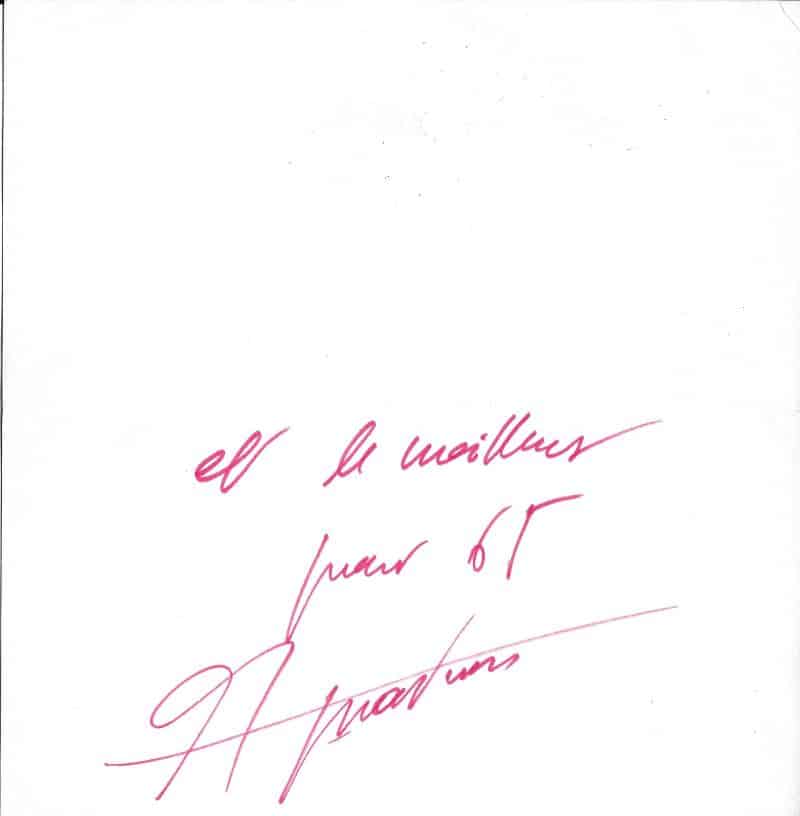 et le meilleur
pour 65